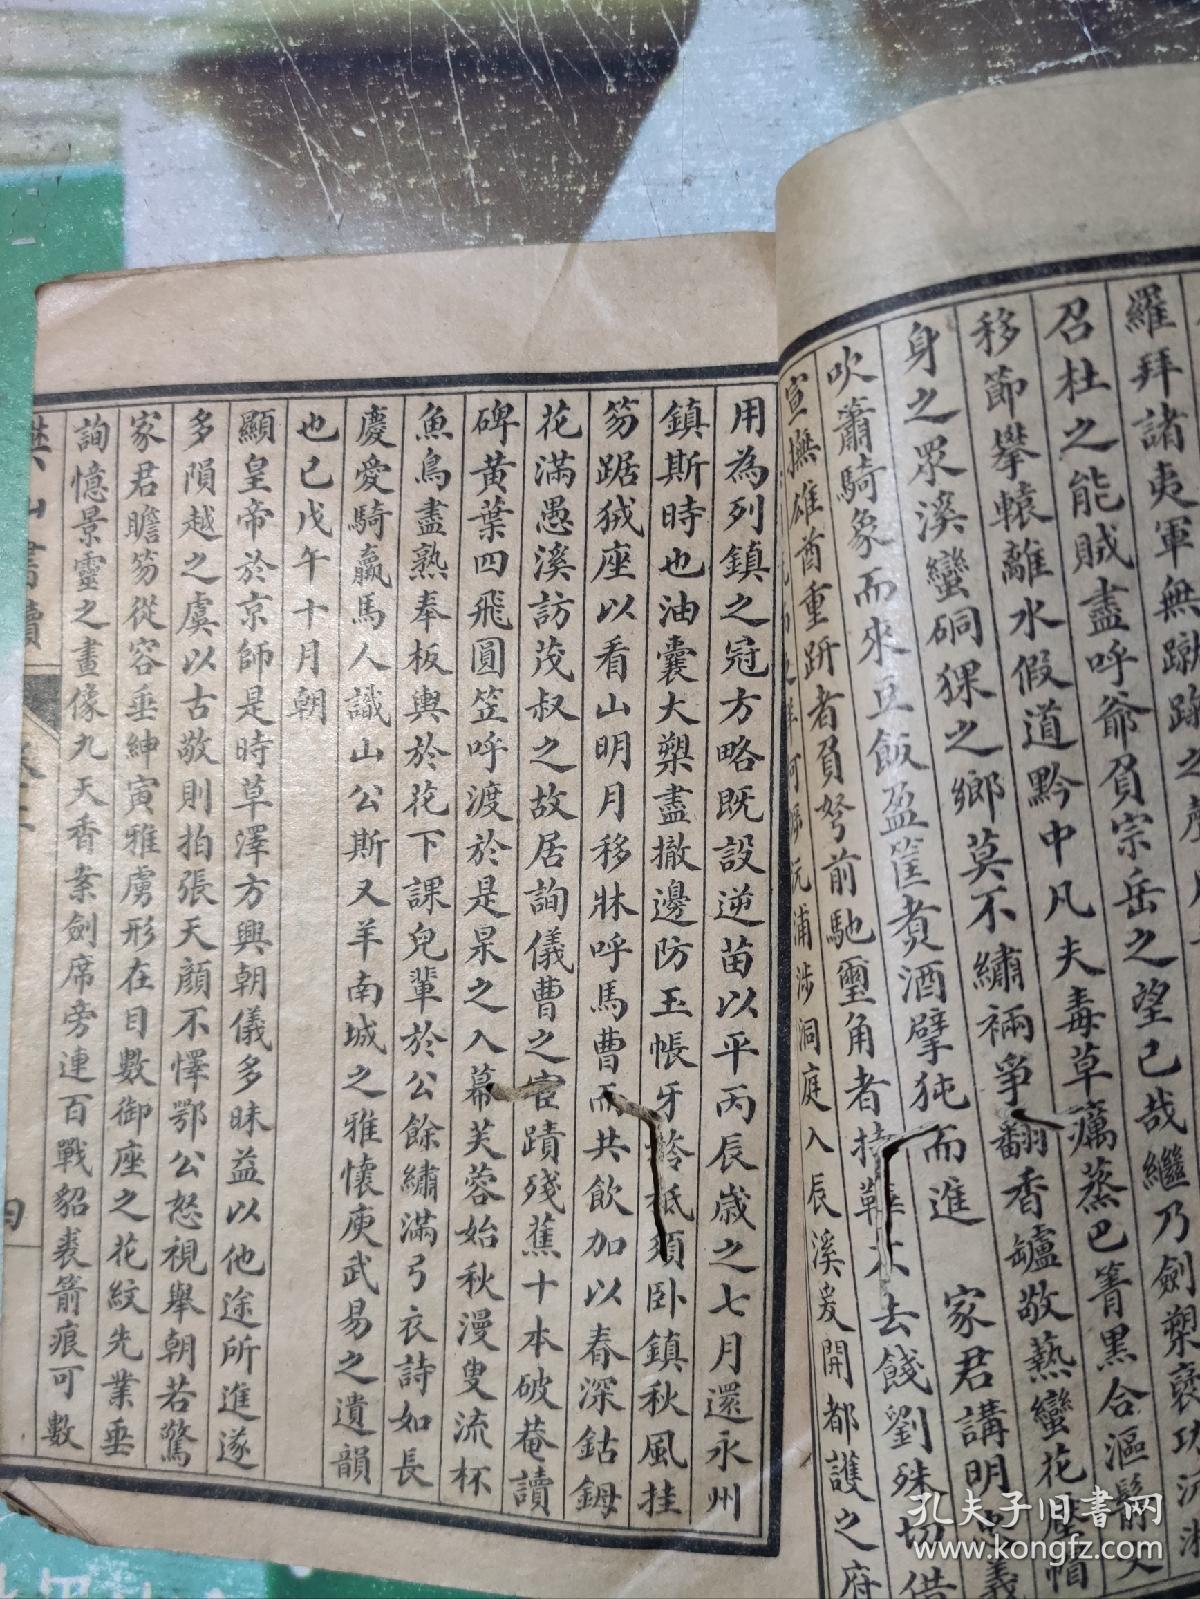 羅拜諸夷軍無
召杜之能賊盡呼爺負宗岳之望已哉繼乃劍槊
移節攀轅離水假道黔中凡夫毒草癘蒸巴箐黑合漚
身之眾溪蠻硐猓之鄉莫不繡裲爭翻香鑪敬爇蠻花
吹簫騎象而來豆飯盈筐煑酒擘㹠而進　家君講明
宣撫雄酋重趼者負弩前馳璽角者持 去餞劉殊切借
浦涉洞庭入辰溪爰開都護之府
用為列鎮之冠方略既設逆苗以平丙辰歲之七月還永州
鎮斯時也油囊大槊盡撤邊防玉帳牙 卧鎮秋風挂
笏踞狨座以看山明月移牀呼馬曹而共飲加以春深鈷鉧
花滿愚溪訪茂叔之故居詢儀曹之宦蹟殘蕉十本破菴讀
碑黃葉四飛圓笠呼渡於是杲之入幕芙蓉始秋漫叟流杯
魚鳥盡熟奉板輿於花下課兒輩於公餘繡滿弓衣詩如長
慶愛騎羸馬人識山公斯又羊南城之雅懷庾武易之遺韻
也已戊午十月朝
顯皇帝於京師是時草澤方興朝儀多昧益以他途所進遂
多隕越之虞以古敬則拍張天顔不懌鄂公怒視舉朝若驚
家君瞻笏從容垂紳寅雅虜形在目數御座之花紋先業垂
詢憶景靈之畫像九天香案劍席旁連百戰貂裘箭痕可數
山書牘
孔夫子旧书网
www.kongfz.com